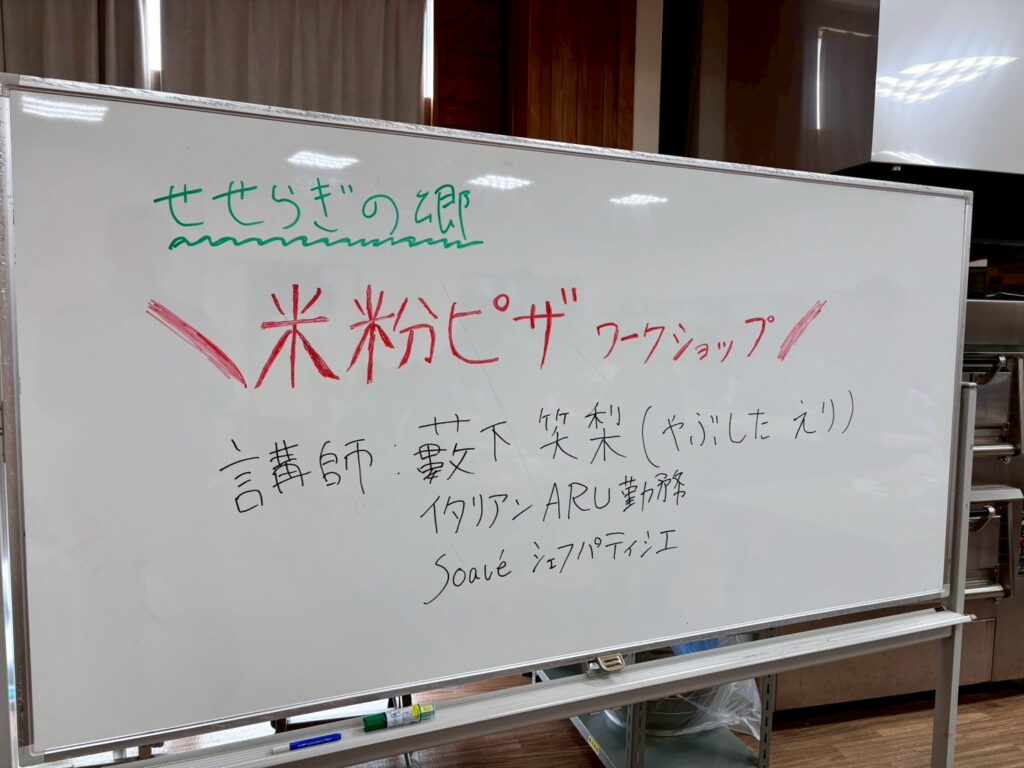 せせらぎの郷
\米粉ピザ ワークショップ/
講師:藪下 笑梨(やぶした えり)
イタリアン ARU 勤務
Soavé シェフパティシエ